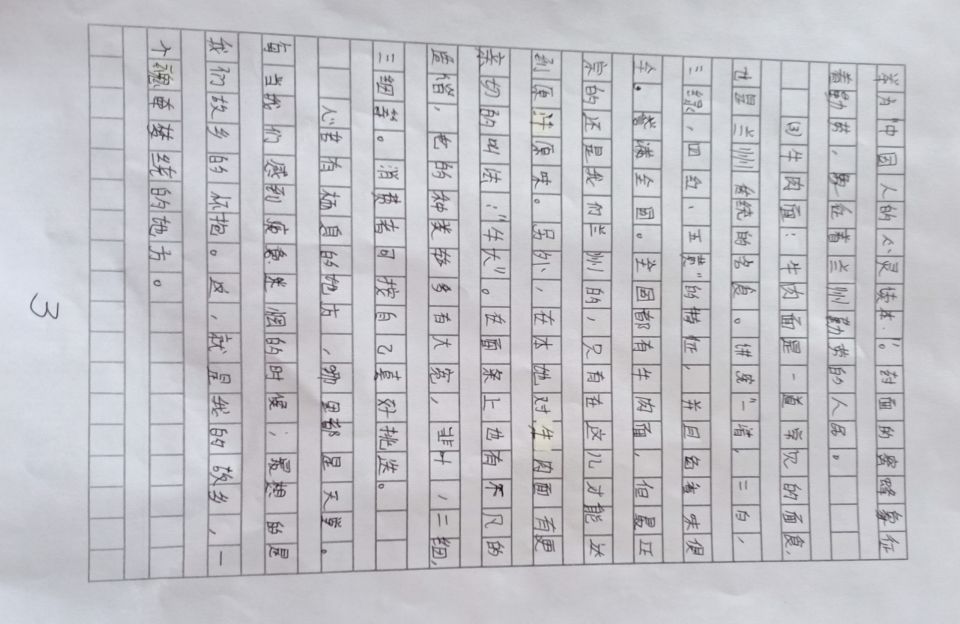 举为“中国人的心灵读本”。封面的蜜蜂象征
着勤劳，署征着兰州勤劳的人民。
(3)牛肉面：牛肉面是一道常见的面食，
也是兰州传统的名食。讲究“一清，二白，
三绿，四红、五黄”的特征，并因色香味俱
全。誉满全国。全国都有牛肉面，但最正
宗的还是我们兰州的，只有在这儿才能达
到原汁原味。另外，在本地对牛肉面有更
亲切的叫法：“牛大”。在面条上也有不凡的
造诣，它的种类较多有大宽，韭叶，二细，
三细等。消费者可按自己喜好挑选。
心若有栖息的地方，哪里都是天堂。
每当我们感到疲惫是困的时候；最想的是
我们故乡的怀抱。这，就是我的故乡，一
个魂牵梦绕的地方。
3